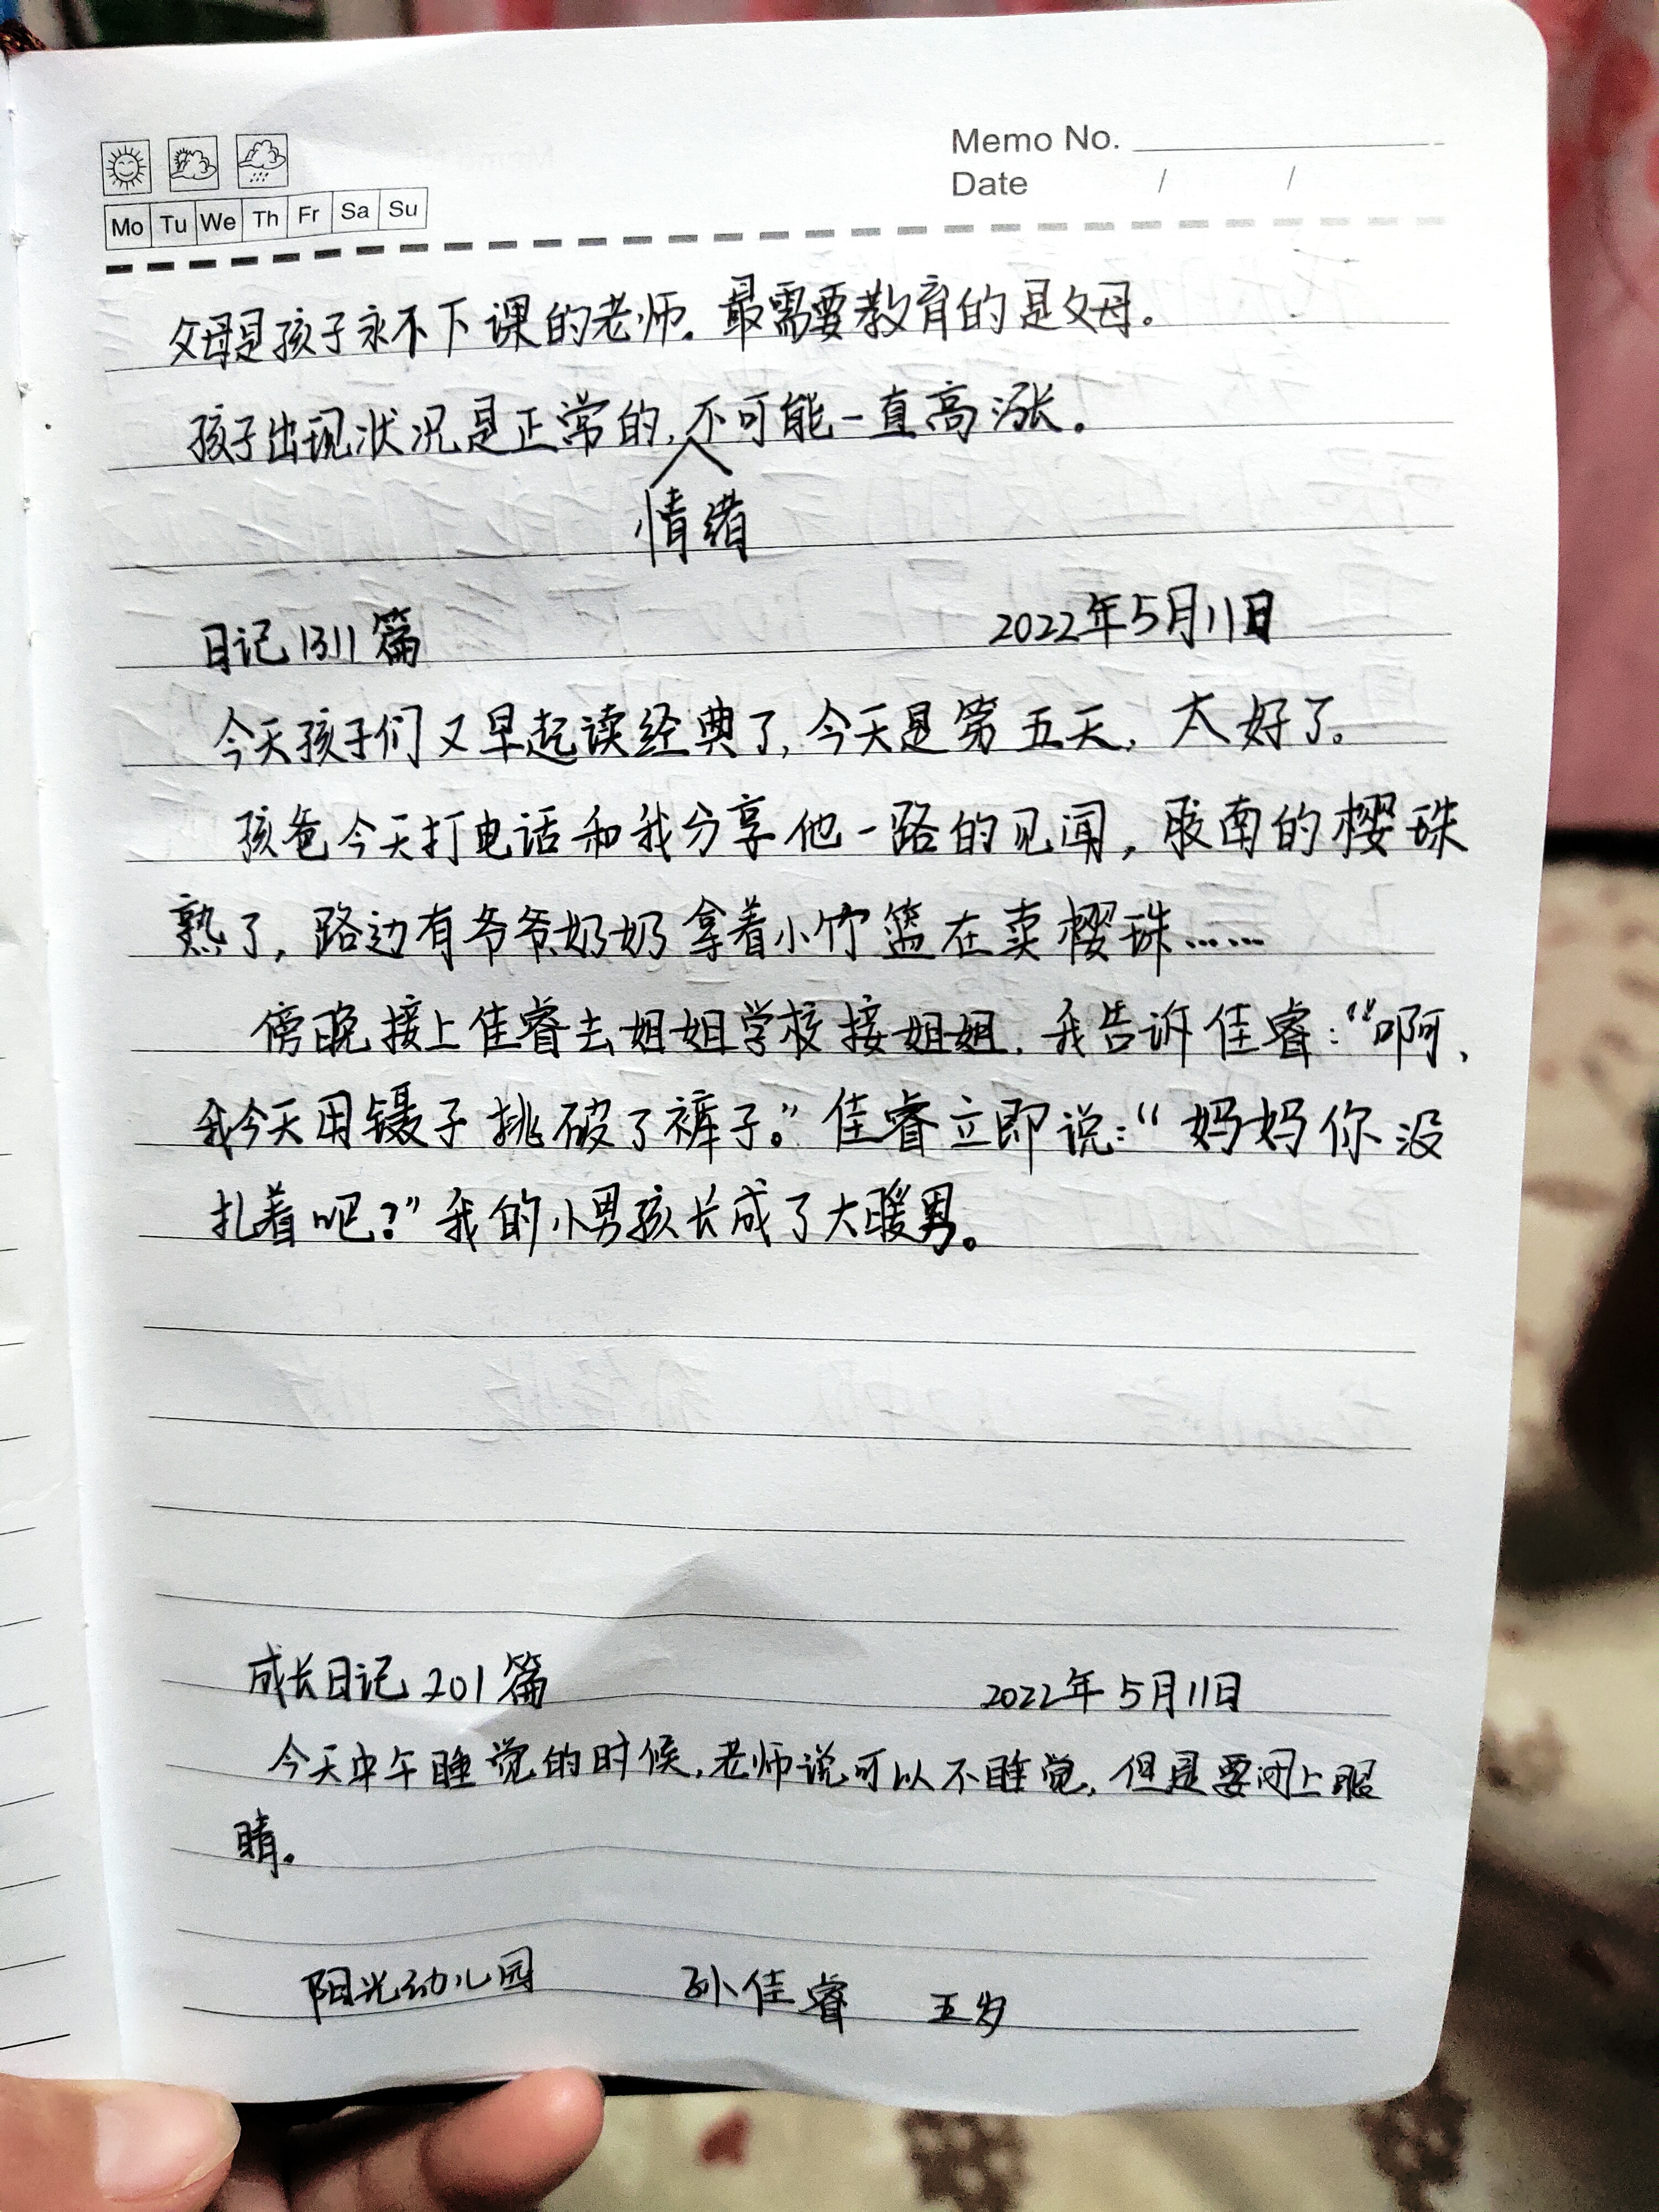 Memo No.
Date / /
Mo Tu We Th Fr Sa Su
父母是孩子永不下课的老师。最需要教育的是父母。
孩子出现状况是正常的,情绪不可能一直高涨。
日记1311篇 2022年5月11日
今天孩子们又早起读经典了,今天是第五天,太好了。
孩爸今天打电话和我分享他一路的见闻,胶南的樱珠
熟了,路边有爷爷奶奶拿着小竹篮在卖樱珠……
傍晚接上佳睿去姐姐学校接姐姐,我告诉佳睿:“啊,
我今天用镊子挑破了裤子。”佳睿立即说:“妈妈你没
扎着吧?”我的小男孩长成了大暖男。
成长日记201篇 2022年5月11日
今天中午睡觉的时候,老师说可以不睡觉,但是要闭上眼
睛。
阳光幼儿园 孙佳睿 五岁